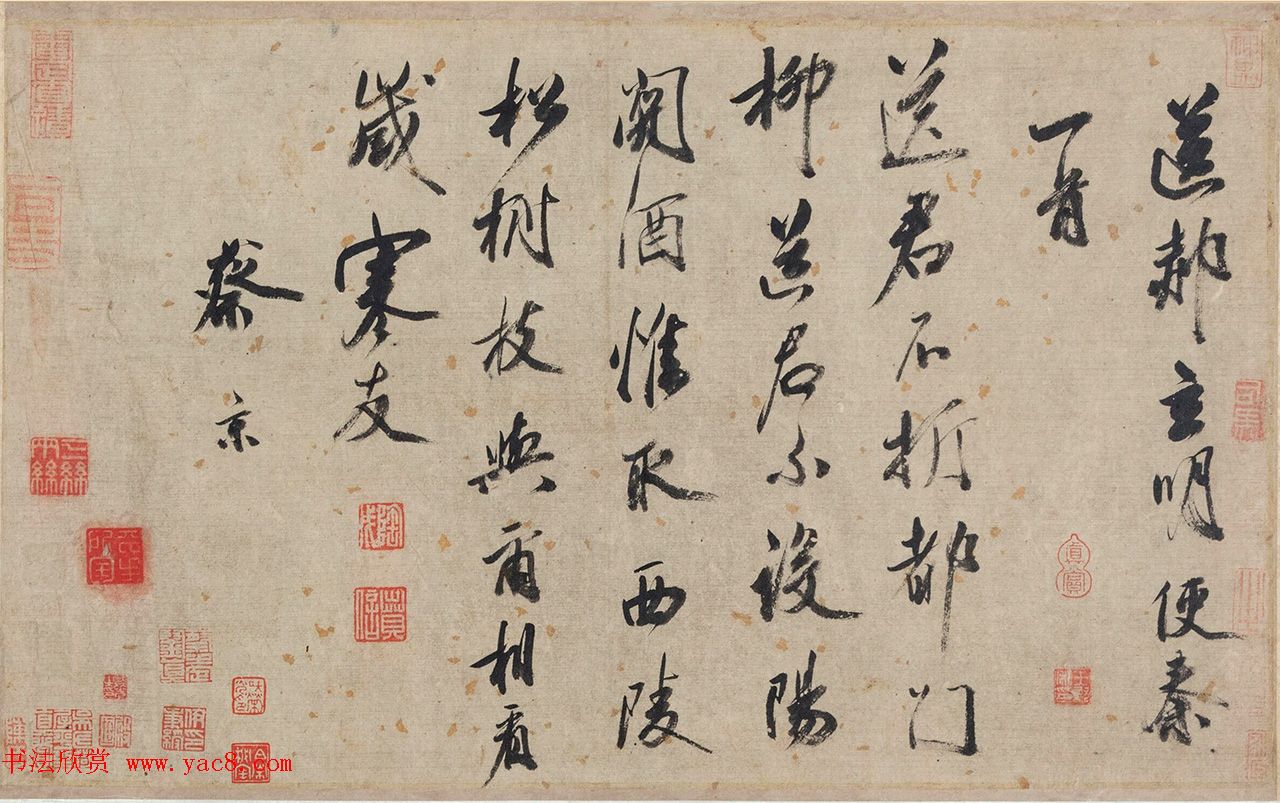 送郝玄明使秦
一首
送君不折都門
柳送君不設陽
關酒惟取西陵
松樹枝與爾相看
歲寒友
蔡京
真賞
书法欣赏 www.yac8.com